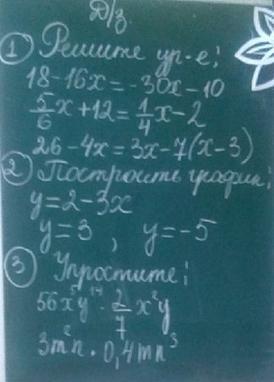 Д/з.
① Решите ур-е:
18-16x=-30x-10
5/6x+12=1/4x-2
26-4x=3x-7(x-3)
② Построить график:
y=2-3x
y=3 , y=-5
③ Упростите:
56x⁵y¹⁴ · 2/7 x²y
3m²n · 0,4mn³